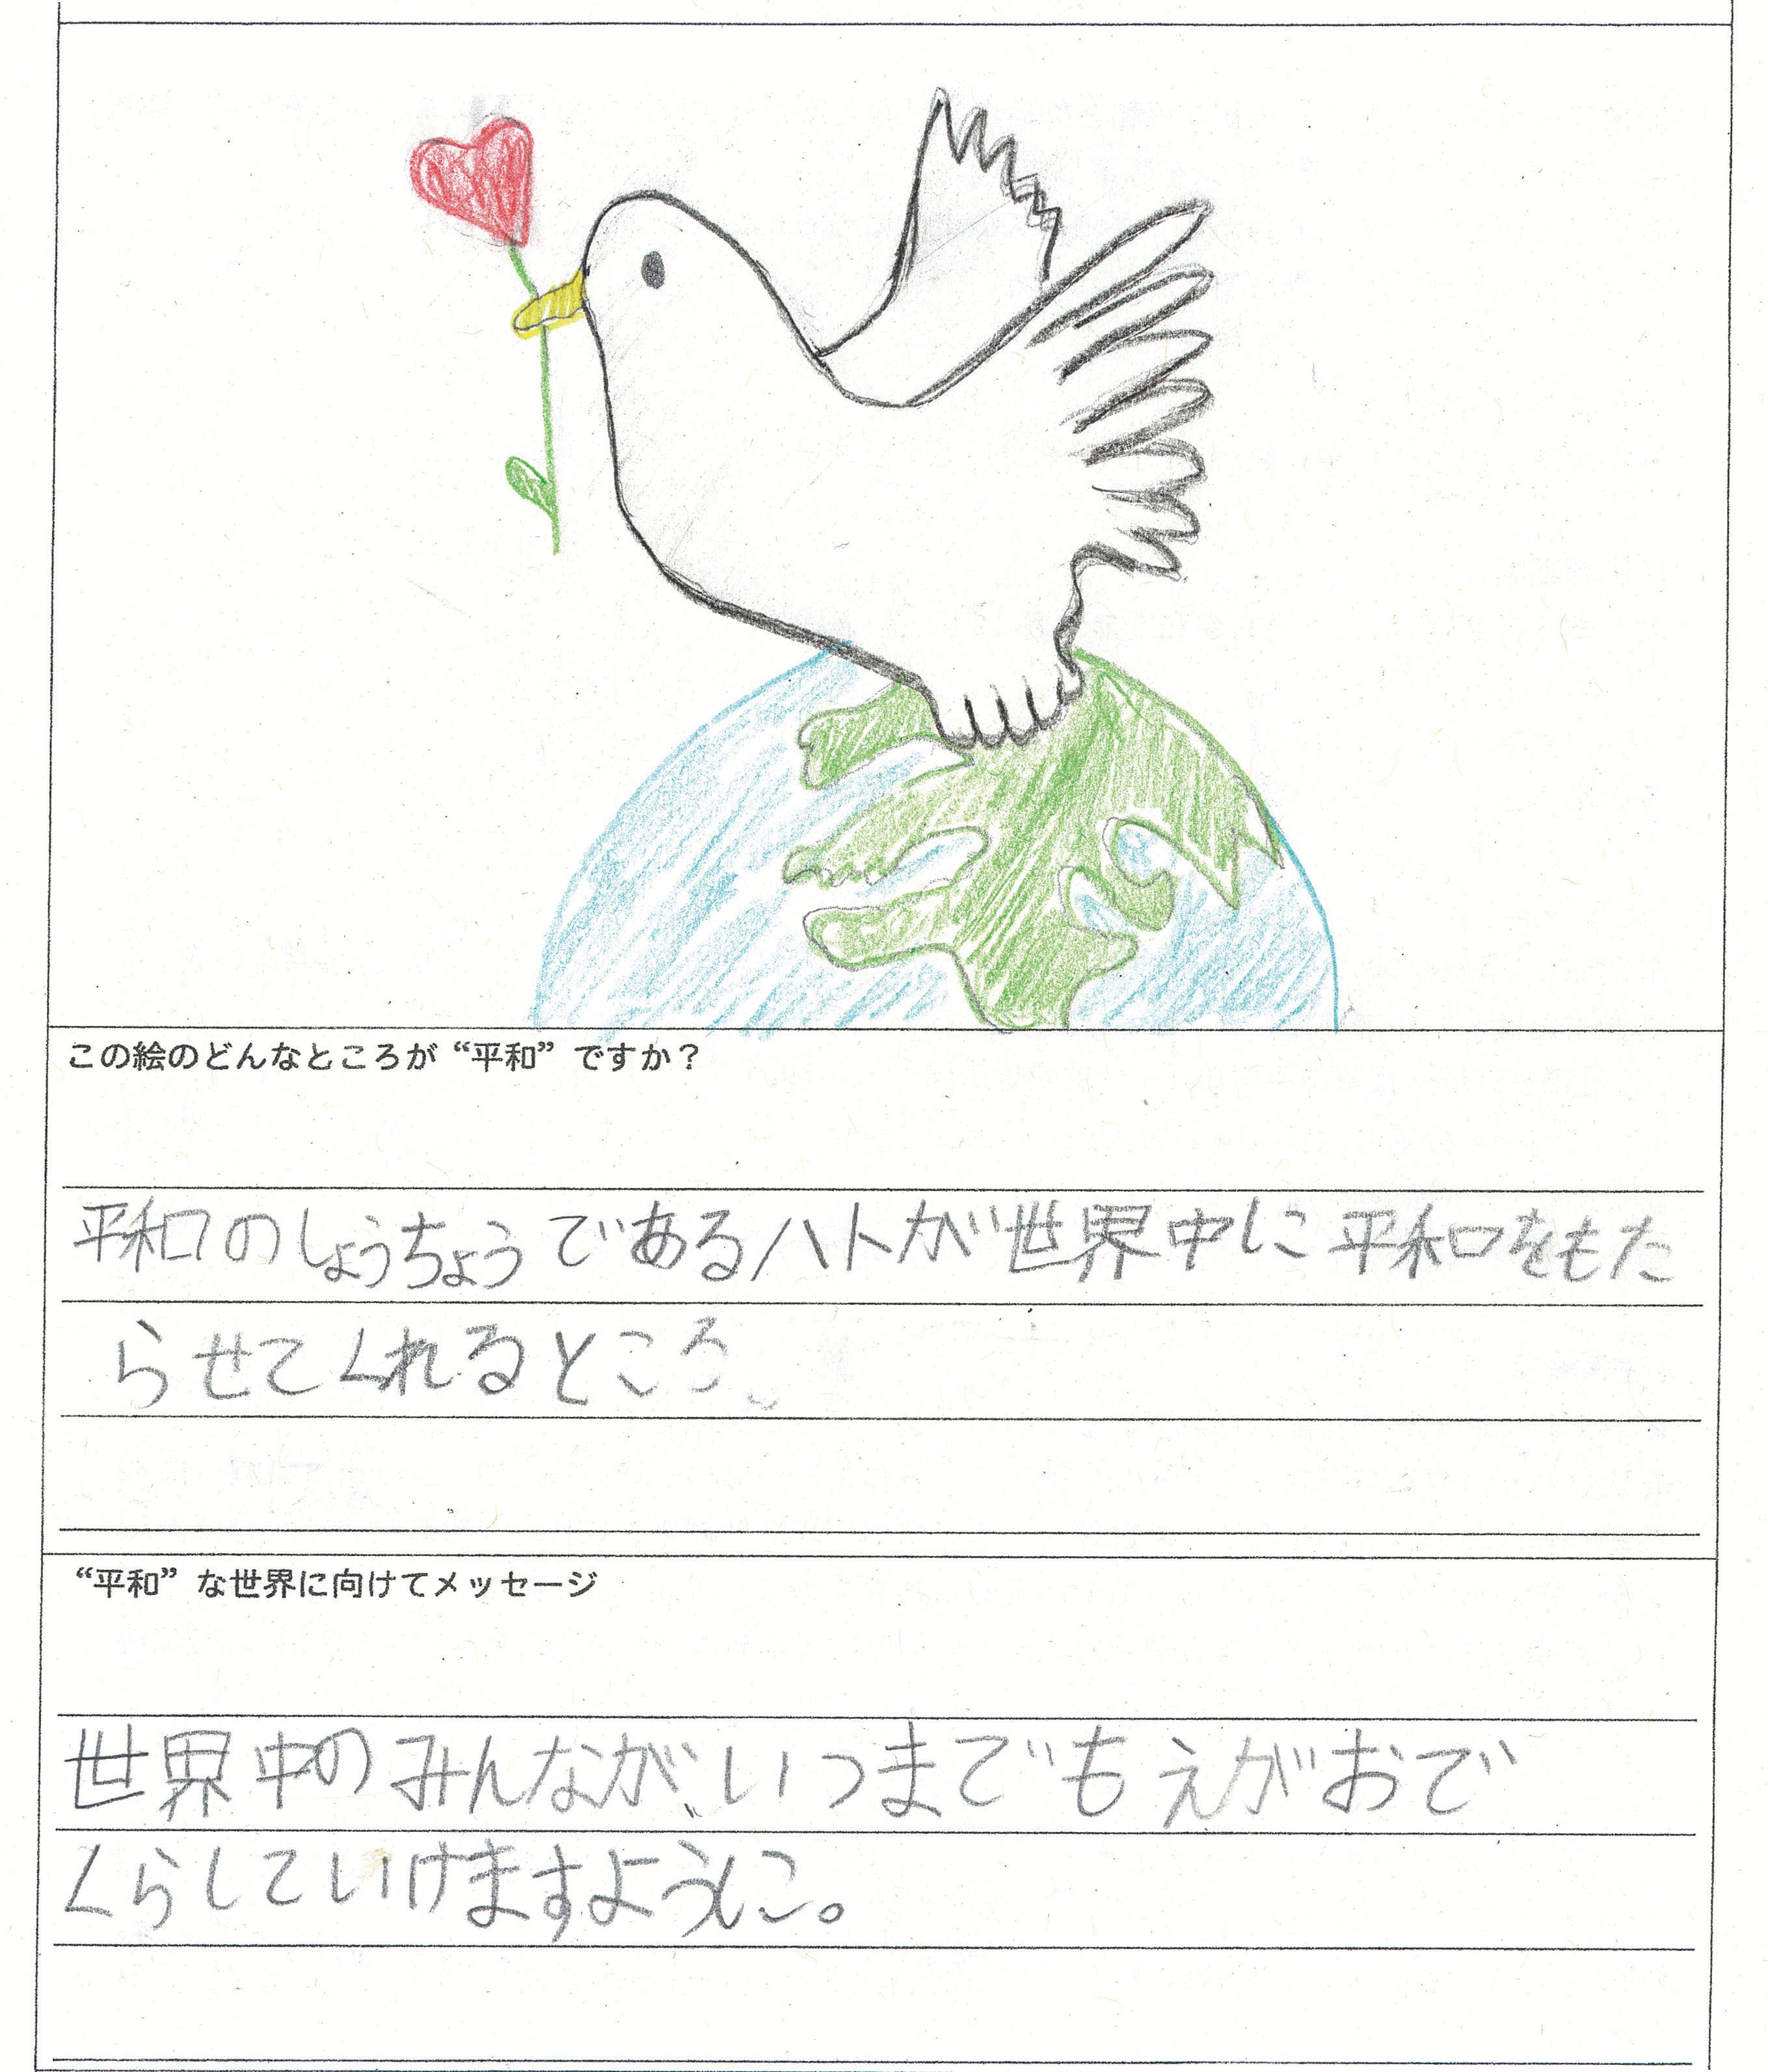 この絵のどんなところが“平和”ですか？
平和のしょうちょうであるハトが世界中に平和をもた
らせてくれるところ。
“平和”な世界に向けてメッセージ
世界中のみんなが、いつまでもえがおで
くらしていけますように。